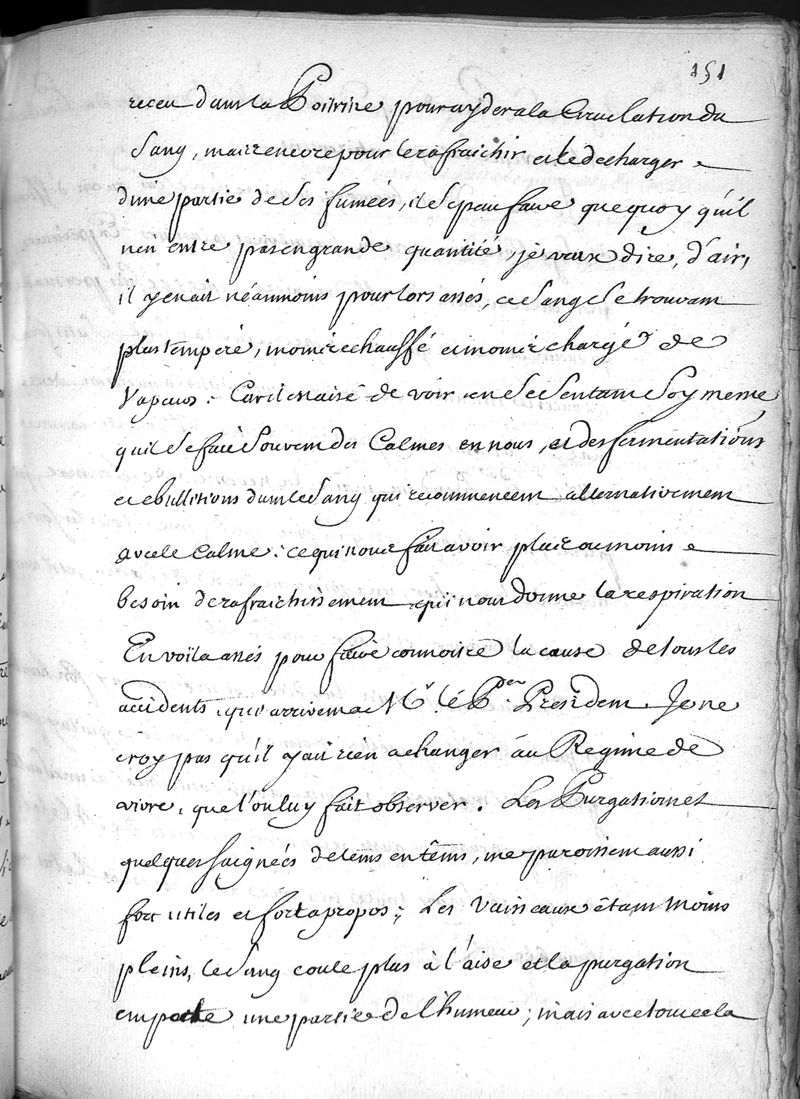 151
receu dans la Poitrine pour ayder a la Circulation du
Sang, mais encore pour le rafraichir et le decharger
d'une partie de Ses fumées, il Se peut faire que quoy qu'il
n'en entre pas en grande quantité, je veux dire, d'air,
il y en ait néanmoins pour lors assés, ce Sang Se trouvant
plus tempéré, moins echauffé et moins chargé de
Vapeurs: Car il est aisé de voir en Se Sentant Soy meme
qu'il Se fait Souvent des Calmes en nous, et des fermentations
et ebullitions dans le Sang qui recommencent alternativement
avec le Calme: ce qui nous fait avoir plus ou moins
besoin de rafraichissement qui nous donne la respiration
En voila assés pour faire connoitre la cause de tous les
accidents, qui arrivent a Mr. le Per. President Je ne
croy pas qu'il y ait rien a changer au Regime de
vivre, que l'on luy fait observer. Les Purgations et
quelques Saignées de tems en tems, me paroissent aussi
fort utiles et fort a propos; Les Vaisseaux étant moins
pleins, le Sang coule plus à l'aise et la purgation
emporte une partie de l'humeur; mais avec tout cela